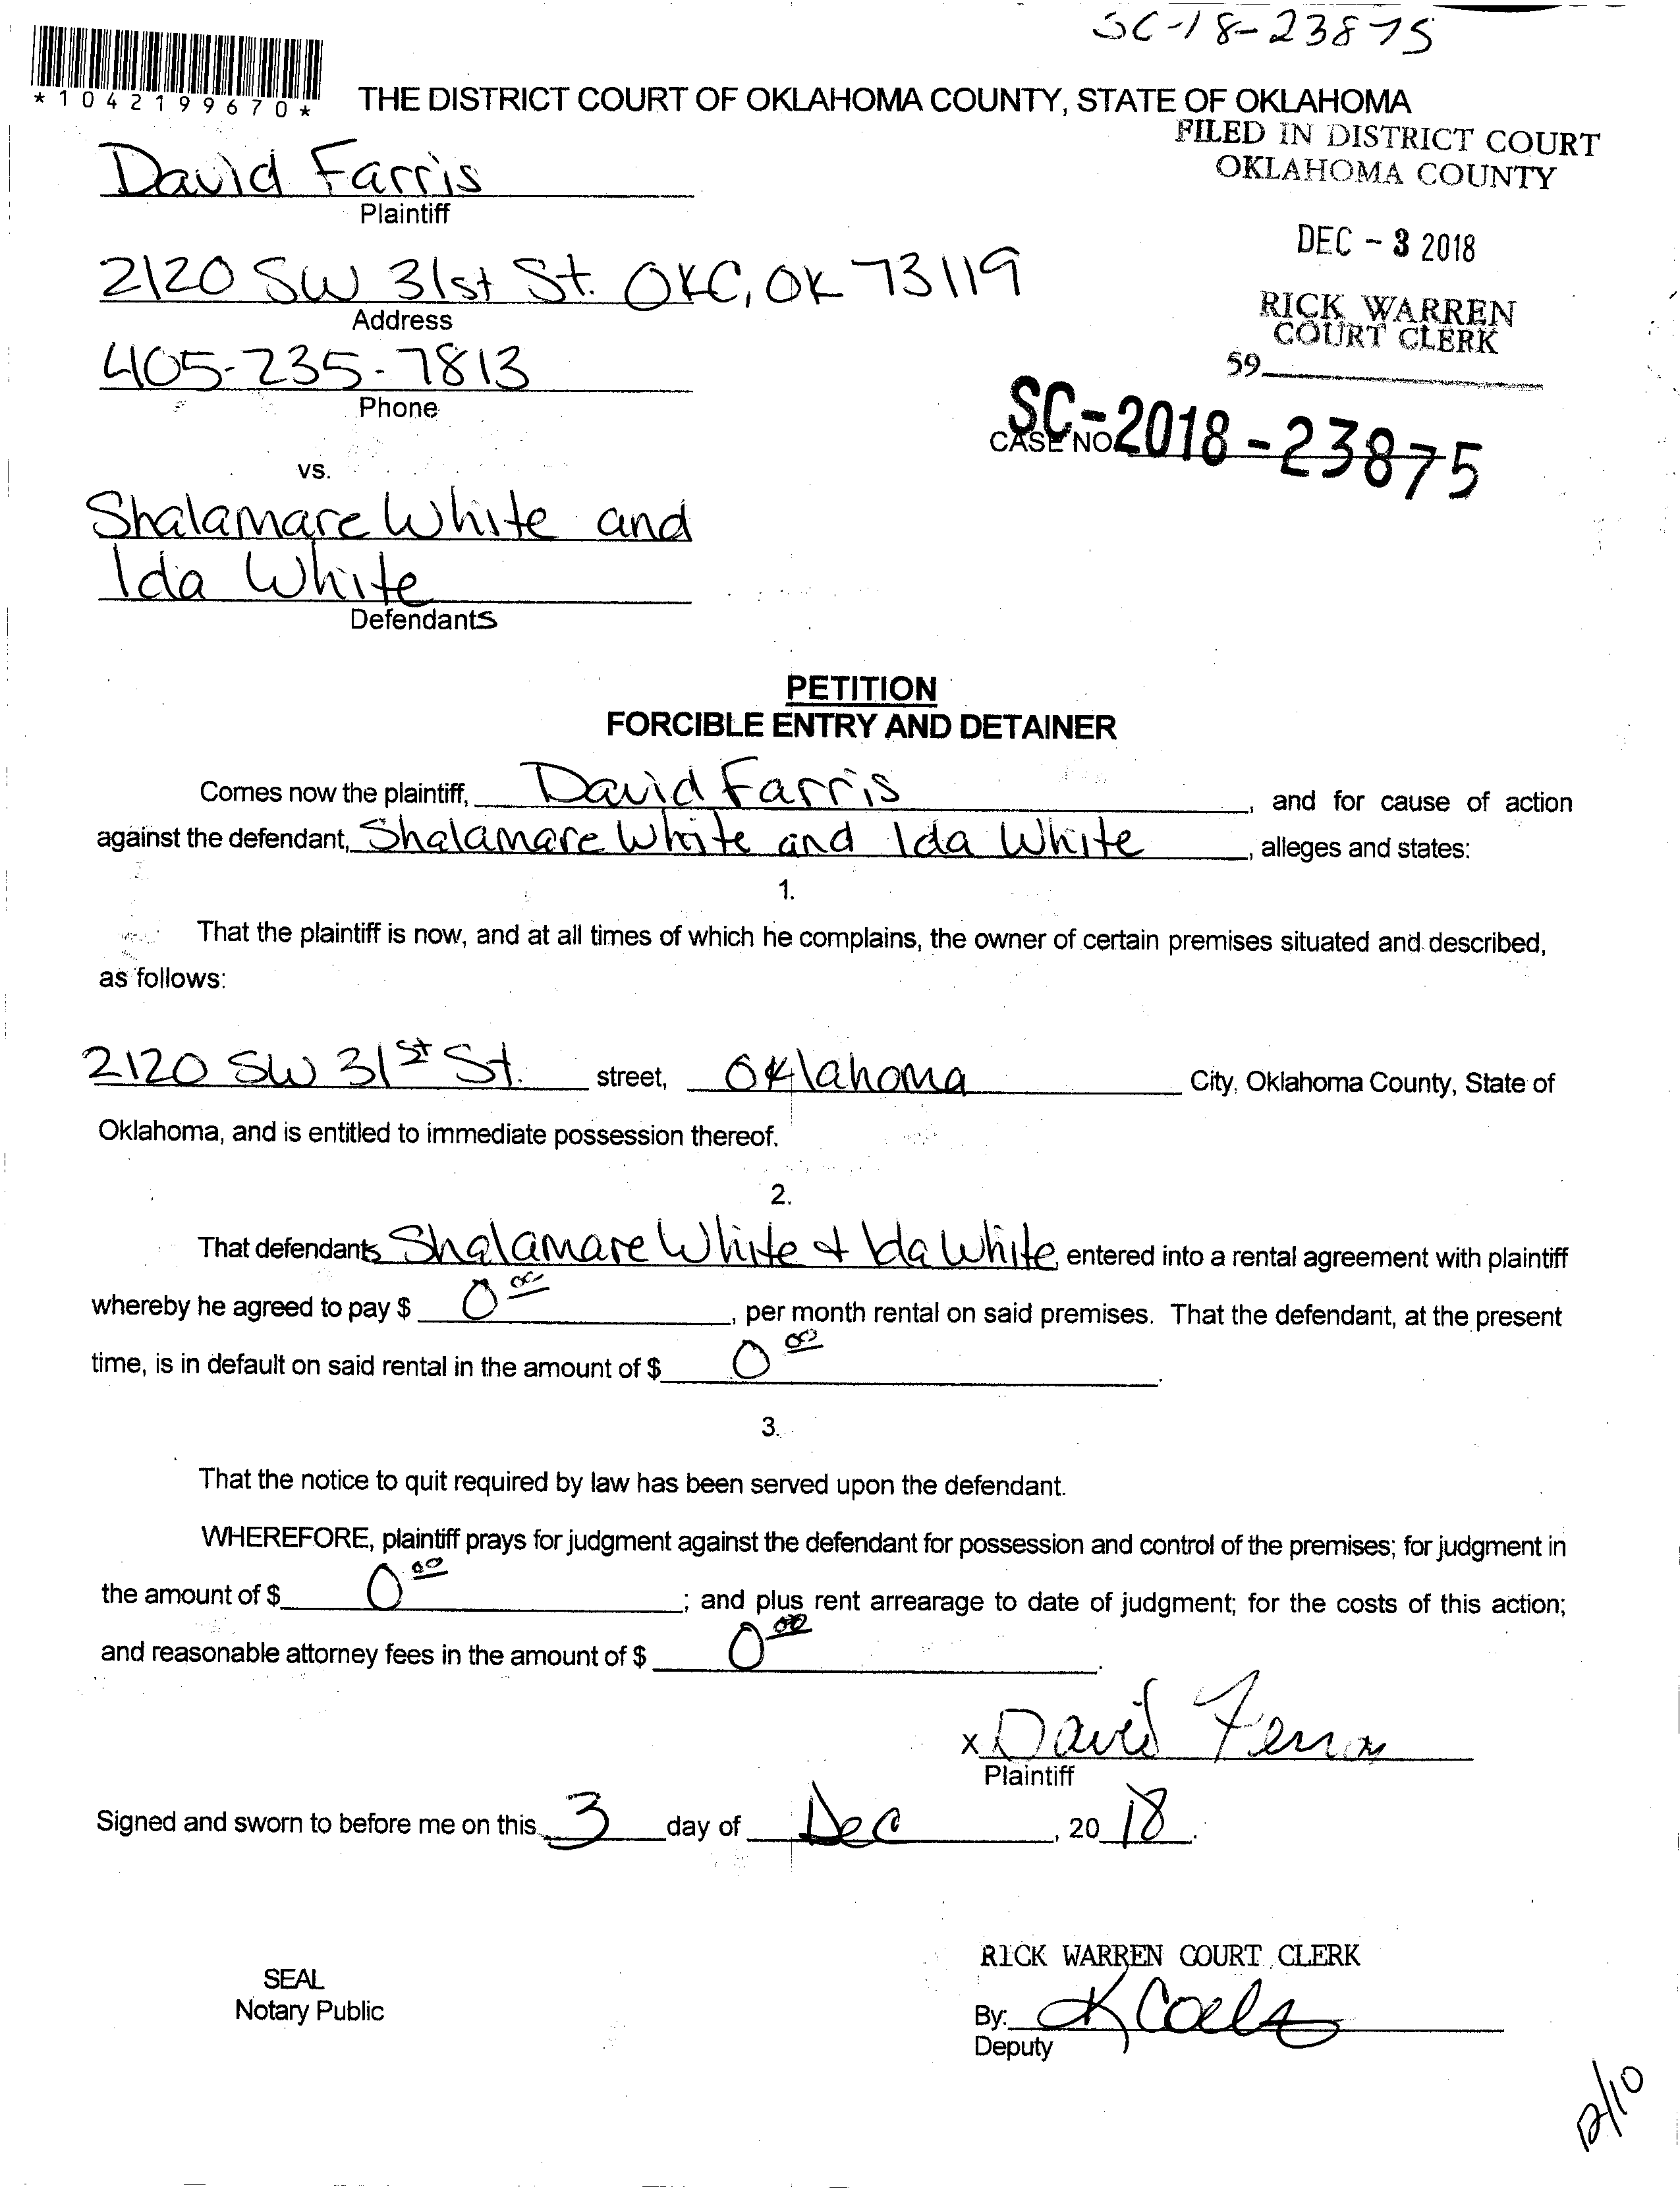 SC-18-23875
*1042199670*
THE DISTRICT COURT OF OKLAHOMA COUNTY, STATE OF OKLAHOMA
FILED IN DISTRICT COURT
OKLAHOMA COUNTY
David Farris
Plaintiff
DEC - 3 2018
2120 SW 31st St. OKC, OK 73119
Address
RICK WARREN
COURT CLERK
405-235-7813
Phone
59
SC-2018-23875
CASE NO
vs.
Shalamare White and
Ida White
Defendants
PETITION
FORCIBLE ENTRY AND DETAINER
Comes now the plaintiff, David Farris, and for cause of action
against the defendant, Shalamare White and Ida White, alleges and states:
1.
That the plaintiff is now, and at all times of which he complains, the owner of certain premises situated and described,
as follows:
2120 SW 31st St. street, Oklahoma City, Oklahoma County, State of
Oklahoma, and is entitled to immediate possession thereof.
2.
That defendants Shalamare White + Ida White, entered into a rental agreement with plaintiff
whereby he agreed to pay $ 0 00, per month rental on said premises. That the defendant, at the present
time, is in default on said rental in the amount of $ 0 00.
3.
That the notice to quit required by law has been served upon the defendant.
WHEREFORE, plaintiff prays for judgment against the defendant for possession and control of the premises; for judgment in
the amount of $ 0 00; and plus rent arrearage to date of judgment; for the costs of this action;
and reasonable attorney fees in the amount of $ 0 00.
X David Farris
Plaintiff
Signed and sworn to before me on this 3 day of Dec, 20 18.
RICK WARREN COURT CLERK
SEAL
Notary Public
By:
Deputy
12/10